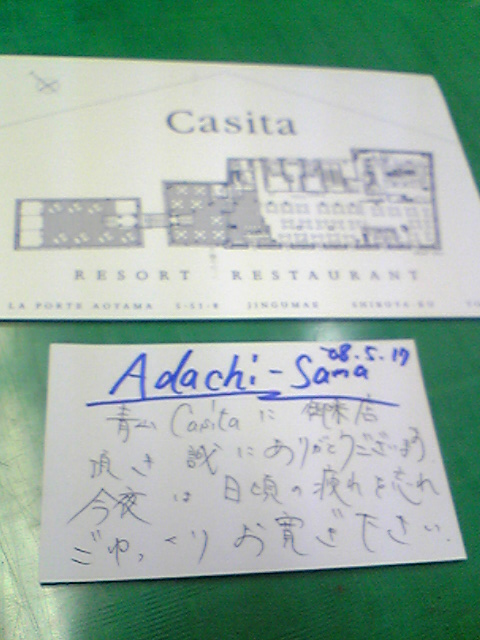 Casita
RESORT RESTAURANT
LA PORTE AOYAMA 5-51-8 JINGUMAE SHIBUYA-KU TO
'08.5.17
Adachi-Sama
青山 Casita に 御来店
頂き 誠にありがとうございます。
今夜は日頃の疲れを忘れ
ごゆっくりお寛ぎ下さい.